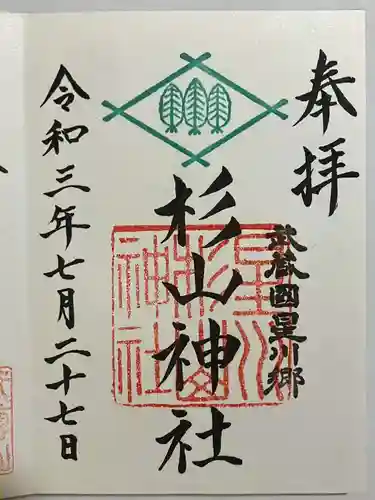 奉拝
武蔵國星川郷
杉山神社
星川杉山神社
令和三年七月二十七日